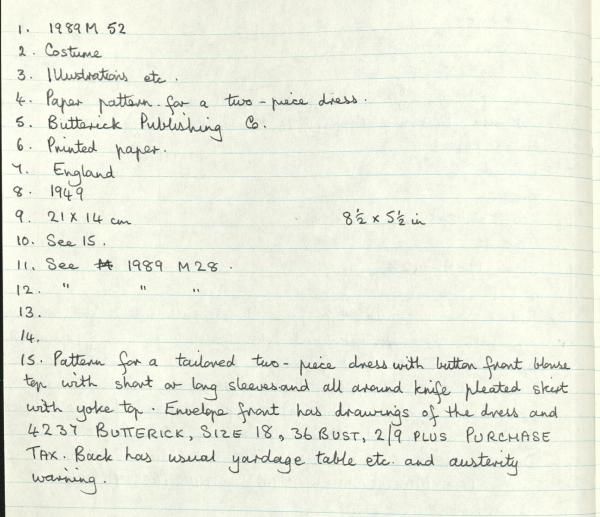 1. 1989 M 52
2. Costume
3. Illustrations etc.
4. Paper pattern for a two-piece dress.
5. Butterick Publishing Co.
6. Printed paper.
7. England
8. 1949
9. 21 x 14 cm 8½ x 5½ in
10. See 15.
11. See 1989 M 28.
12. " " "
13.
14.
15. Pattern for a tailored two-piece dress with button front blouse
top with short or long sleeves and all around knife pleated skirt
with yoke top. Envelope front has drawings of the dress and
4237 BUTTERICK, SIZE 18, 36 BUST, 2/9 PLUS PURCHASE
TAX. Back has usual yardage table etc. and austerity
warning.